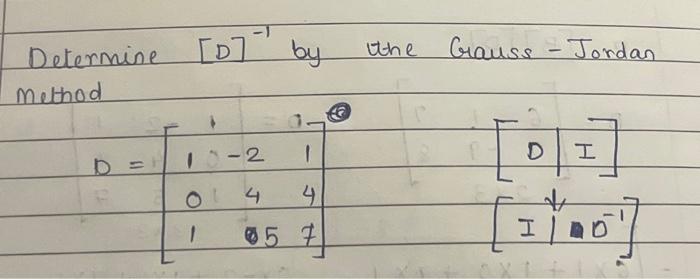 Determine [D]⁻¹ by the Gauss - Jordan
Method
D = [ 1 -2 1
0 4 4
1 5 7 ]
[ D | I ]
↓
[ I | D⁻¹ ]